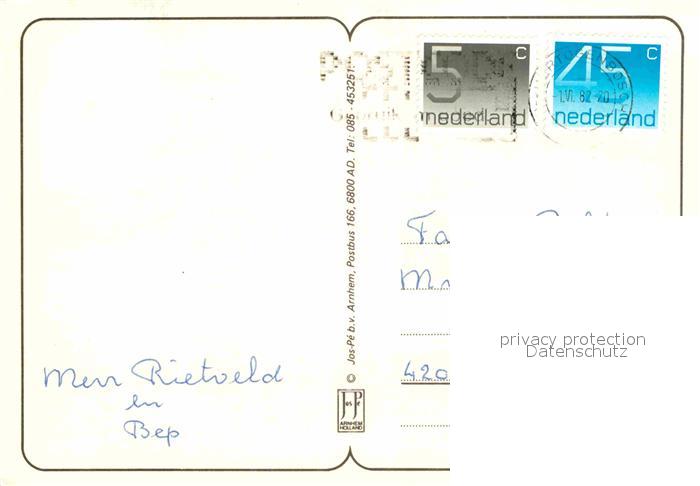 5 c
nederland
45 c
nederland
1.VI.82-20
© Jos-Pé b.v. Arnhem, Postbus 166, 6800 AD. Tel: 085 - 453251
Fa
M
privacy protection
Datenschutz
420
Menr Rietveld
en
Bep
Jos Pé
ARNHEM
HOLLAND